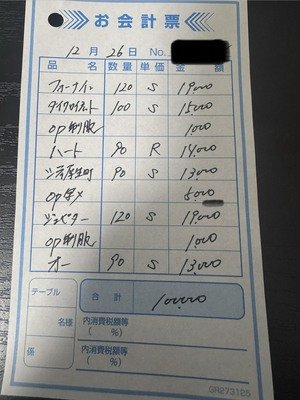 お会計票
12月 26日 No.
品 名 数量 単価 金 額
120 S 19000
100 S 15000
op制服 1000
ハート 90 R 14000
90 S 13000
op 5000
120 S 19000
op制服 1000
オー 90 S 13000
テーブル 合 計 100000
名様 内消費税額等 ( %)
係 内消費税額等 ( %)
GR273125